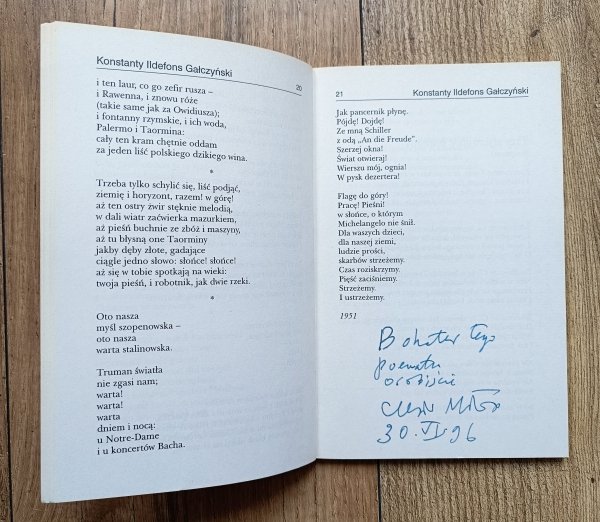 Konstanty Ildefons Gałczyński
20
i ten laur, co go zefir rusza –
i Rawenna, i znowu róże
(takie same jak za Owidiusza);
i fontanny rzymskie, i ich woda,
Palermo i Taormina:
cały ten kram chętnie oddam
za jeden liść polskiego dzikiego wina.
*
Trzeba tylko schylić się, liść podjąć,
ziemię i horyzont, razem! w górę!
aż ten ostry żwir stęknie melodią,
w dali wiatr zaćwierka mazurkiem,
aż pieśń buchnie ze zbóż i maszyny,
aż tu błysną one Taorminy
jakby dęby złote, gadające
ciągle jedno słowo: słońce! słońce!
aż się w tobie spotkają na wieki:
twoja pieśń, i robotnik, jak dwie rzeki.
*
Oto nasza
myśl szopenowska –
oto nasza
warta stalinowska.
Truman światła
nie zgasi nam;
warta!
warta!
warta
dniem i nocą:
u Notre-Dame
i u koncertów Bacha.
21
Konstanty Ildefons Gałczyński
Jak pancernik płynę.
Pójdę! Dojdę!
Ze mną Schiller
z odą „An die Freude”.
Szerzej okna!
Świat otwieraj!
Wierszu mój, ognia!
W pysk dezertera!
Flagę do góry!
Pracę! Pieśni!
w słońce, o którym
Michelangelo nie śnił.
Dla waszych dzieci,
dla naszej ziemi,
ludzie prości,
skarbów strzeżemy.
Czas roziskrzymy.
Pięść zaciśniemy.
Strzeżemy.
I ustrzeżemy.
1951
Bohater tego
poematu
osobiście
Czesław Miłosz
30.VI 96